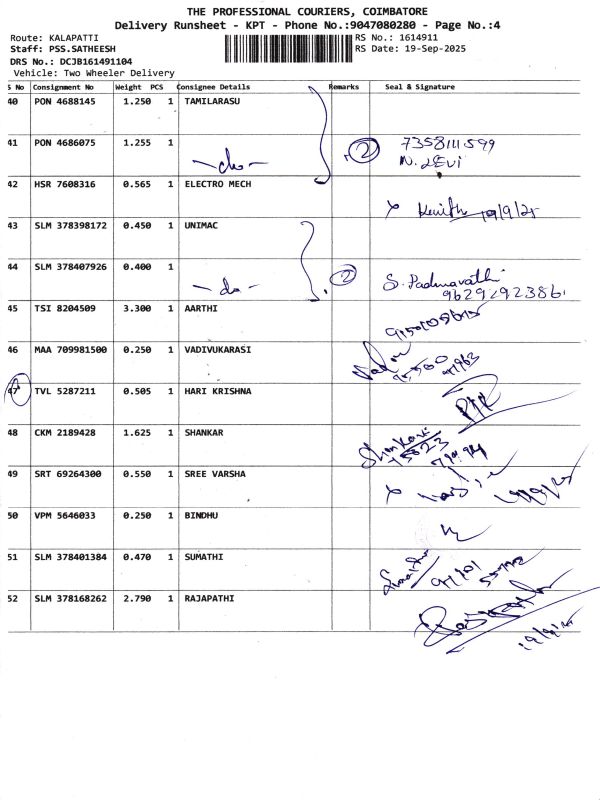 THE PROFESSIONAL COURIERS, COIMBATORE
Delivery Runsheet - KPT - Phone No.:9047080280 - Page No.:4
Route: KALAPATTI RS No.: 1614911
Staff: PSS.SATHEESH RS Date: 19-Sep-2025
DRS No.: DCJB161491104
Vehicle: Two Wheeler Delivery
S No Consignment No Weight PCS Consignee Details Remarks Seal & Signature
40 PON 4688145 1.250 1 TAMILARASU
41 PON 4686075 1.255 1 -do- 2 7358111599
N. DEVI
42 HSR 7608316 0.565 1 ELECTRO MECH
x 19/9/25
43 SLM 378398172 0.450 1 UNIMAC
44 SLM 378407926 0.400 1 -do- 2 S. Padmavathi
9629292386
45 TSI 8204509 3.300 1 AARTHI
46 MAA 709981500 0.250 1 VADIVUKARASI
47 TVL 5287211 0.505 1 HARI KRISHNA
48 CKM 2189428 1.625 1 SHANKAR
49 SRT 69264300 0.550 1 SREE VARSHA
x 19/9/25
50 VPM 5646033 0.250 1 BINDHU
51 SLM 378401384 0.470 1 SUMATHI
52 SLM 378168262 2.790 1 RAJAPATHI
19/9/25